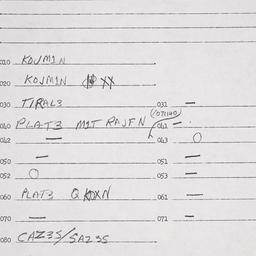 010 KOJM1N
020 KOJM1N XX
030 T1RAL3 031 —
040 PLAT3 M1T RAJFN (OTTIHO) 041 —
042 — 043 O
050 — 051 —
052 O 053 —
060 PLAT3 Q KOXN 061 —
070 — 071 —
080 CAZ3S/SAZ3S